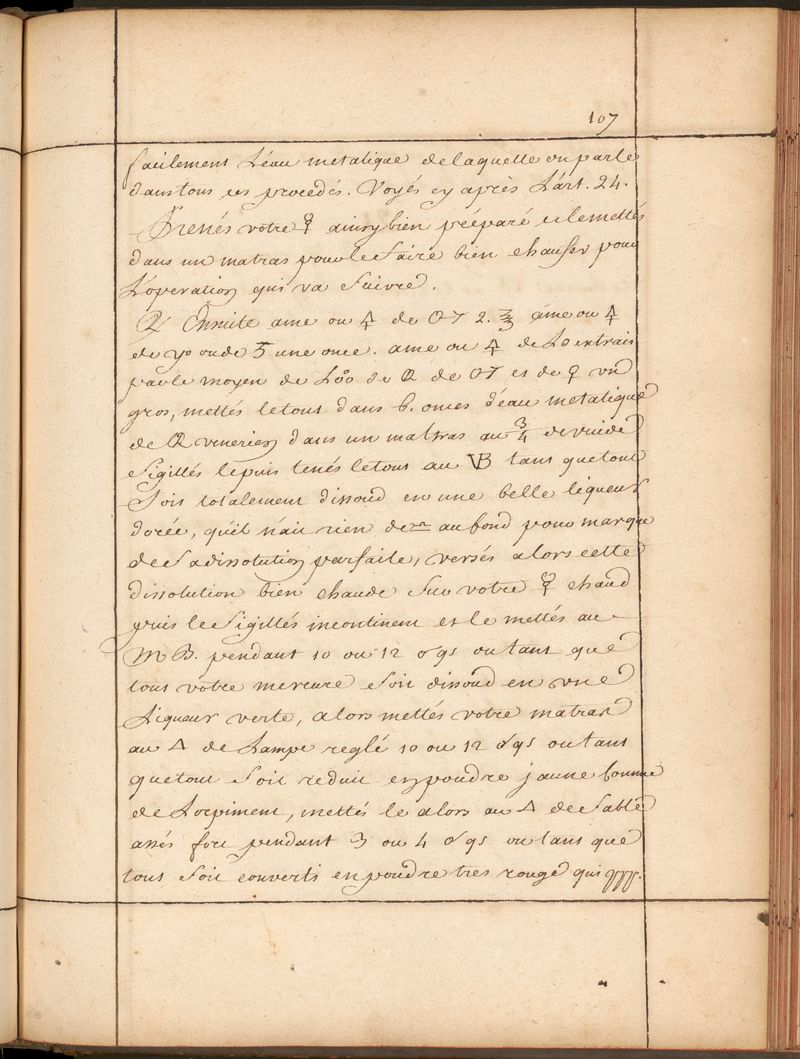 107
facilement L'éau metalique de laquelle on parle
dans tous ces procedés. Voyés cy après L'art. 24.
Prenés votre ☿ ainsy bien préparé et le mettés
dans un matras pour le faire bien chauffer pour
L'operation qui va suivre.
Ensuite ame ou de 2. ʒ ame ou
de ou de une once. ame ou de Lo extrait
par le moyen de de et de ♀ un
gros, mettés le tout dans 6. onces d'éau metalique
de venerien dans un matras au 3/4 de vuide
Sigillés le puis tenés le tout au VB tant que tout
Soit totalement dissoud en une belle liqueur
dorée, qu'il n'ait rien de au fond pour marque
de Sa dissolution parfaite, versés alors cette
dissolution bien chaude Sur votre ☿ chaud
puis le Sigillés incontinent et le mettés au
M B. pendant 10 ou 12 ou tant que
tout votre mercure Soit dissoud en une
Liqueur verte, alors mettés votre matras
au △ de Lampe reglé 10 ou 12 ou tant
que tout Soit reduit en poudre jaune comme
de Lorpiment, mettés le alors au △ de Sable
assés fort pendant 3 ou 4 ou tant que
tout Soit converti en poudre tres rouge qui